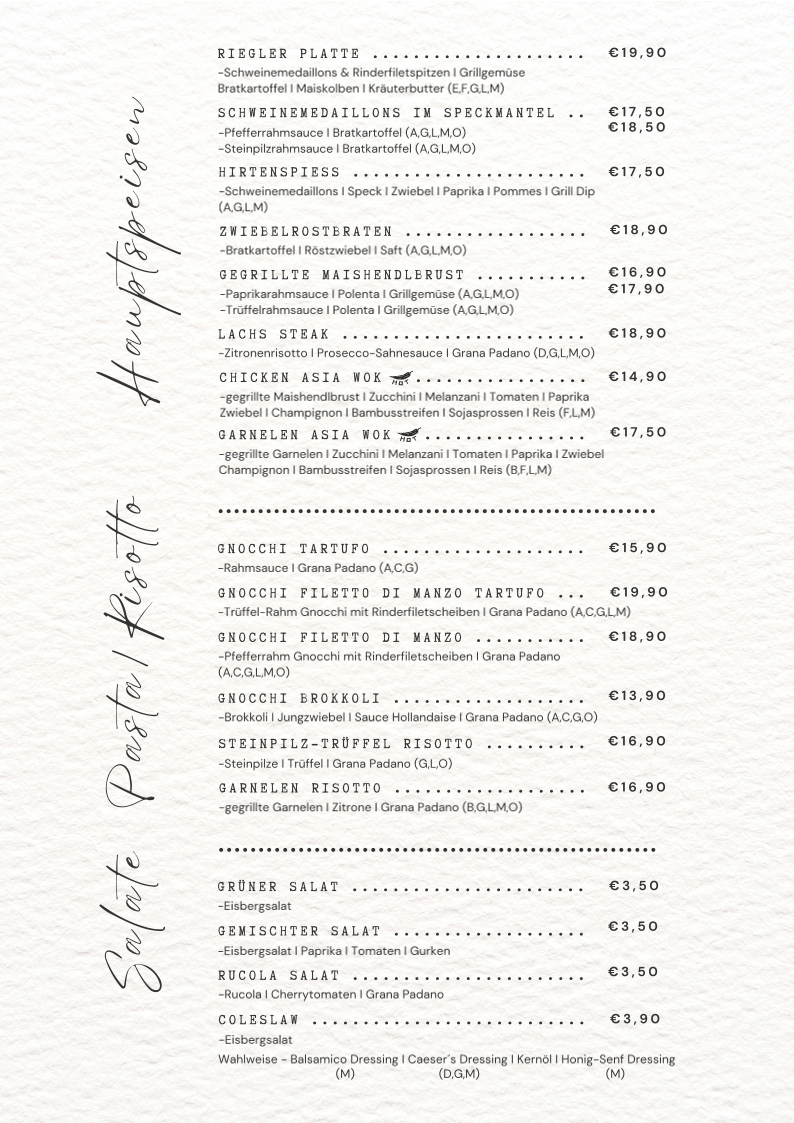 Hauptspeisen
RIEGLER PLATTE ...................... €19,90
-Schweinemedaillons & Rinderfiletspitzen I Grillgemüse
Bratkartoffel I Maiskolben I Kräuterbutter (E,F,G,L,M)
SCHWEINEMEDAILLONS IM SPECKMANTEL .. €17,50
€18,50
-Pfefferrahmsauce I Bratkartoffel (A,G,L,M,O)
-Steinpilzrahmsauce I Bratkartoffel (A,G,L,M,O)
HIRTENSPIESS ........................ €17,50
-Schweinemedaillons I Speck I Zwiebel I Paprika I Pommes I Grill Dip
(A,G,L,M)
ZWIEBELROSTBRATEN .................. €18,90
-Bratkartoffel I Röstzwiebel I Saft (A,G,L,M,O)
GEGRILLTE MAISHENDLBRUST ........... €16,90
€17,90
-Paprikarahmsauce I Polenta I Grillgemüse (A,G,L,M,O)
-Trüffelrahmsauce I Polenta I Grillgemüse (A,G,L,M,O)
LACHS STEAK ......................... €18,90
-Zitronenrisotto I Prosecco-Sahnesauce I Grana Padano (D,G,L,M,O)
CHICKEN ASIA WOK HOT ................. €14,90
-gegrillte Maishendlbrust I Zucchini I Melanzani I Tomaten I Paprika
Zwiebel I Champignon I Bambusstreifen I Sojasprossen I Reis (F,L,M)
GARNELEN ASIA WOK HOT ................ €17,50
-gegrillte Garnelen I Zucchini I Melanzani I Tomaten I Paprika I Zwiebel
Champignon I Bambusstreifen I Sojasprossen I Reis (B,F,L,M)
Pasta/ Risotto
GNOCCHI TARTUFO .................... €15,90
-Rahmsauce I Grana Padano (A,C,G)
GNOCCHI FILETTO DI MANZO TARTUFO ... €19,90
-Trüffel-Rahm Gnocchi mit Rinderfiletscheiben I Grana Padano (A,C,G,L,M)
GNOCCHI FILETTO DI MANZO ........... €18,90
-Pfefferrahm Gnocchi mit Rinderfiletscheiben I Grana Padano
(A,C,G,L,M,O)
GNOCCHI BROKKOLI ................... €13,90
-Brokkoli I Jungzwiebel I Sauce Hollandaise I Grana Padano (A,C,G,O)
STEINPILZ-TRÜFFEL RISOTTO .......... €16,90
-Steinpilze I Trüffel I Grana Padano (G,L,O)
GARNELEN RISOTTO ................... €16,90
-gegrillte Garnelen I Zitrone I Grana Padano (B,G,L,M,O)
Salate
GRÜNER SALAT ....................... €3,50
-Eisbergsalat
GEMISCHTER SALAT ................... €3,50
-Eisbergsalat I Paprika I Tomaten I Gurken
RUCOLA SALAT ....................... €3,50
-Rucola I Cherrytomaten I Grana Padano
COLESLAW ........................... €3,90
-Eisbergsalat
Wahlweise - Balsamico Dressing I Caeser´s Dressing I Kernöl I Honig-Senf Dressing
(M) (D,G,M) (M)